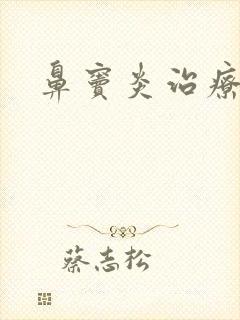 鼻竇炎治療
蔡志松